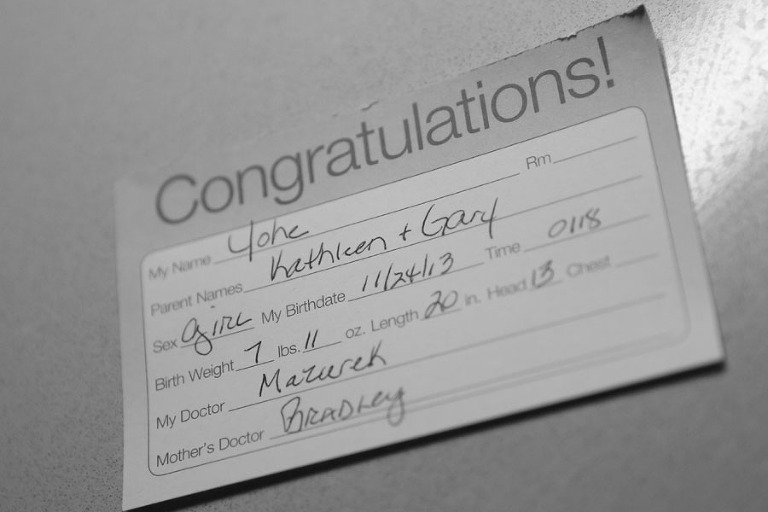 Congratulations!
My Name Yohe Rm
Parent Names Kathleen + Gary
Sex Girl My Birthdate 11/24/13 Time 0118
Birth Weight 7 lbs. 11 oz. Length 20 in. Head 13 Chest
My Doctor Mazurek
Mother's Doctor BRADLey